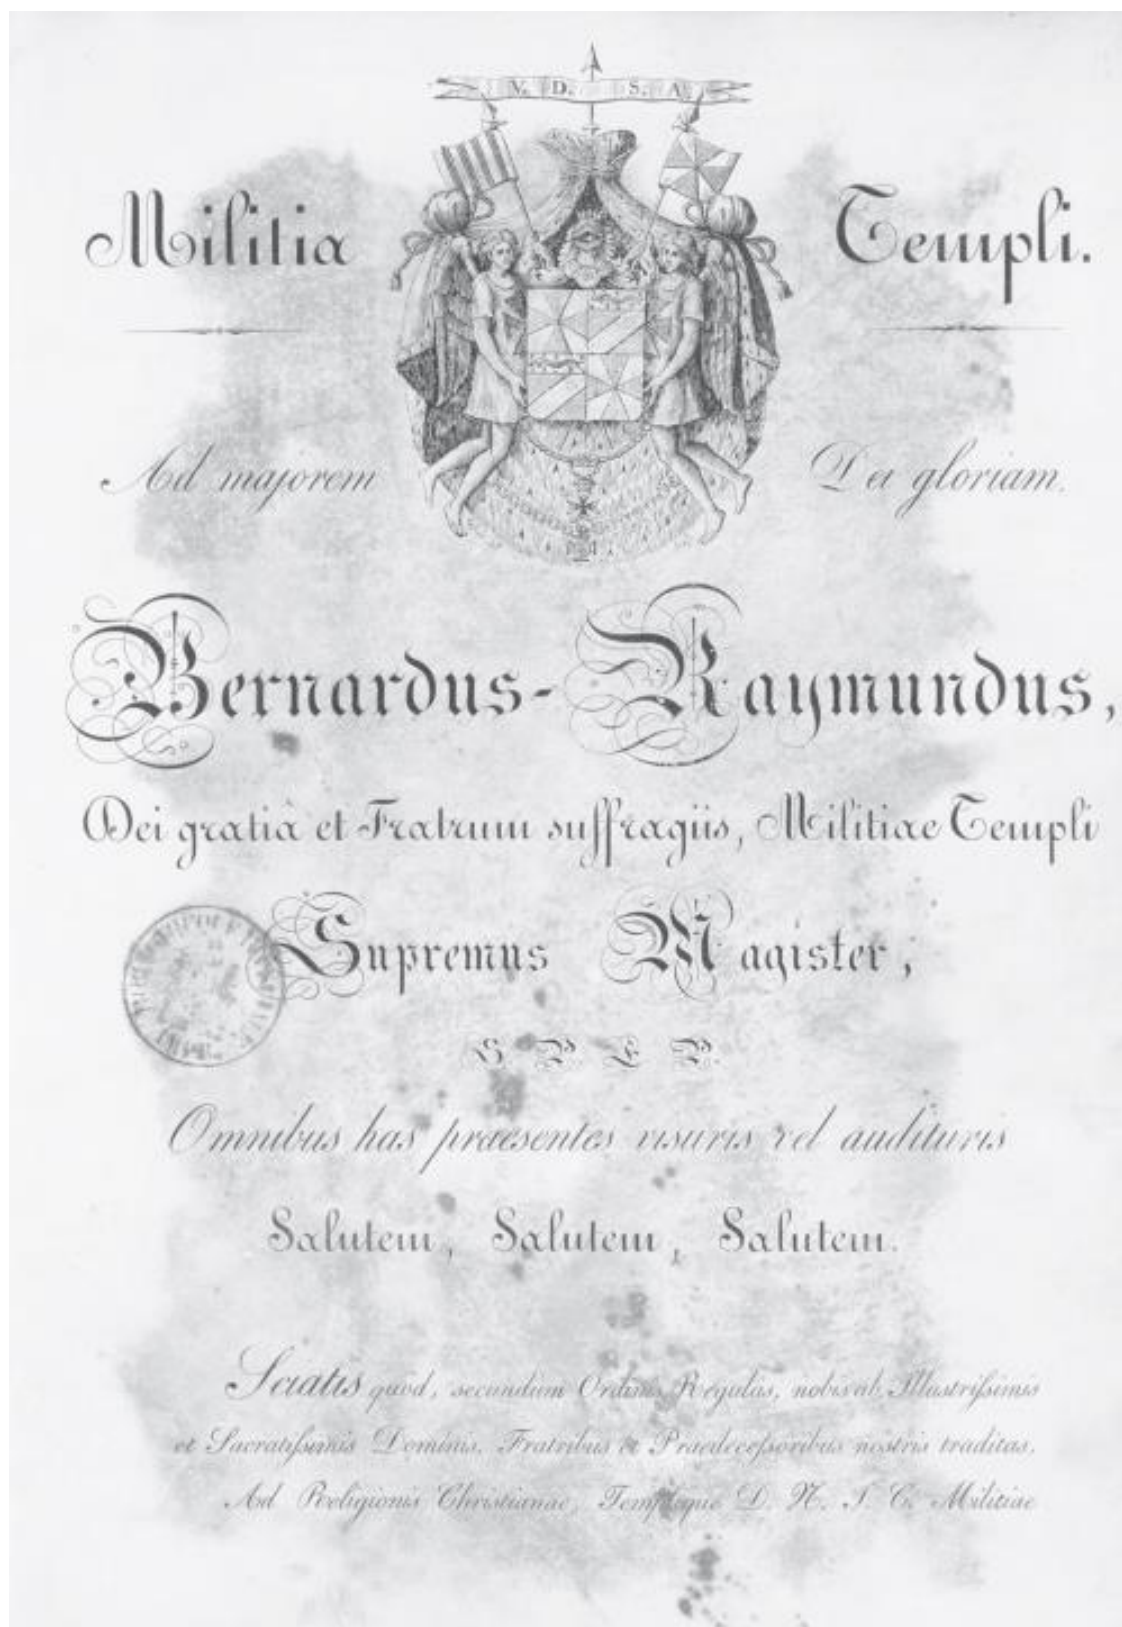 V. D. S. A.
Militia Templi.
Ad majorem Dei gloriam.
Bernardus-Raymundus,
Dei gratiâ et Fratrum suffragiis, Militiae Templi
Supremus Magister,
Omnibus has praesentes visuris vel audituris
Salutem, Salutem, Salutem.
Sciatis quòd, secundùm Ordinis Regulas, nobis ab Illustrissimis
et Sacratissimis Dominis, Fratribus et Praedecessoribus nostris traditas,
Ad Religionis Christianae, Templique D. N. J. C. Militiae